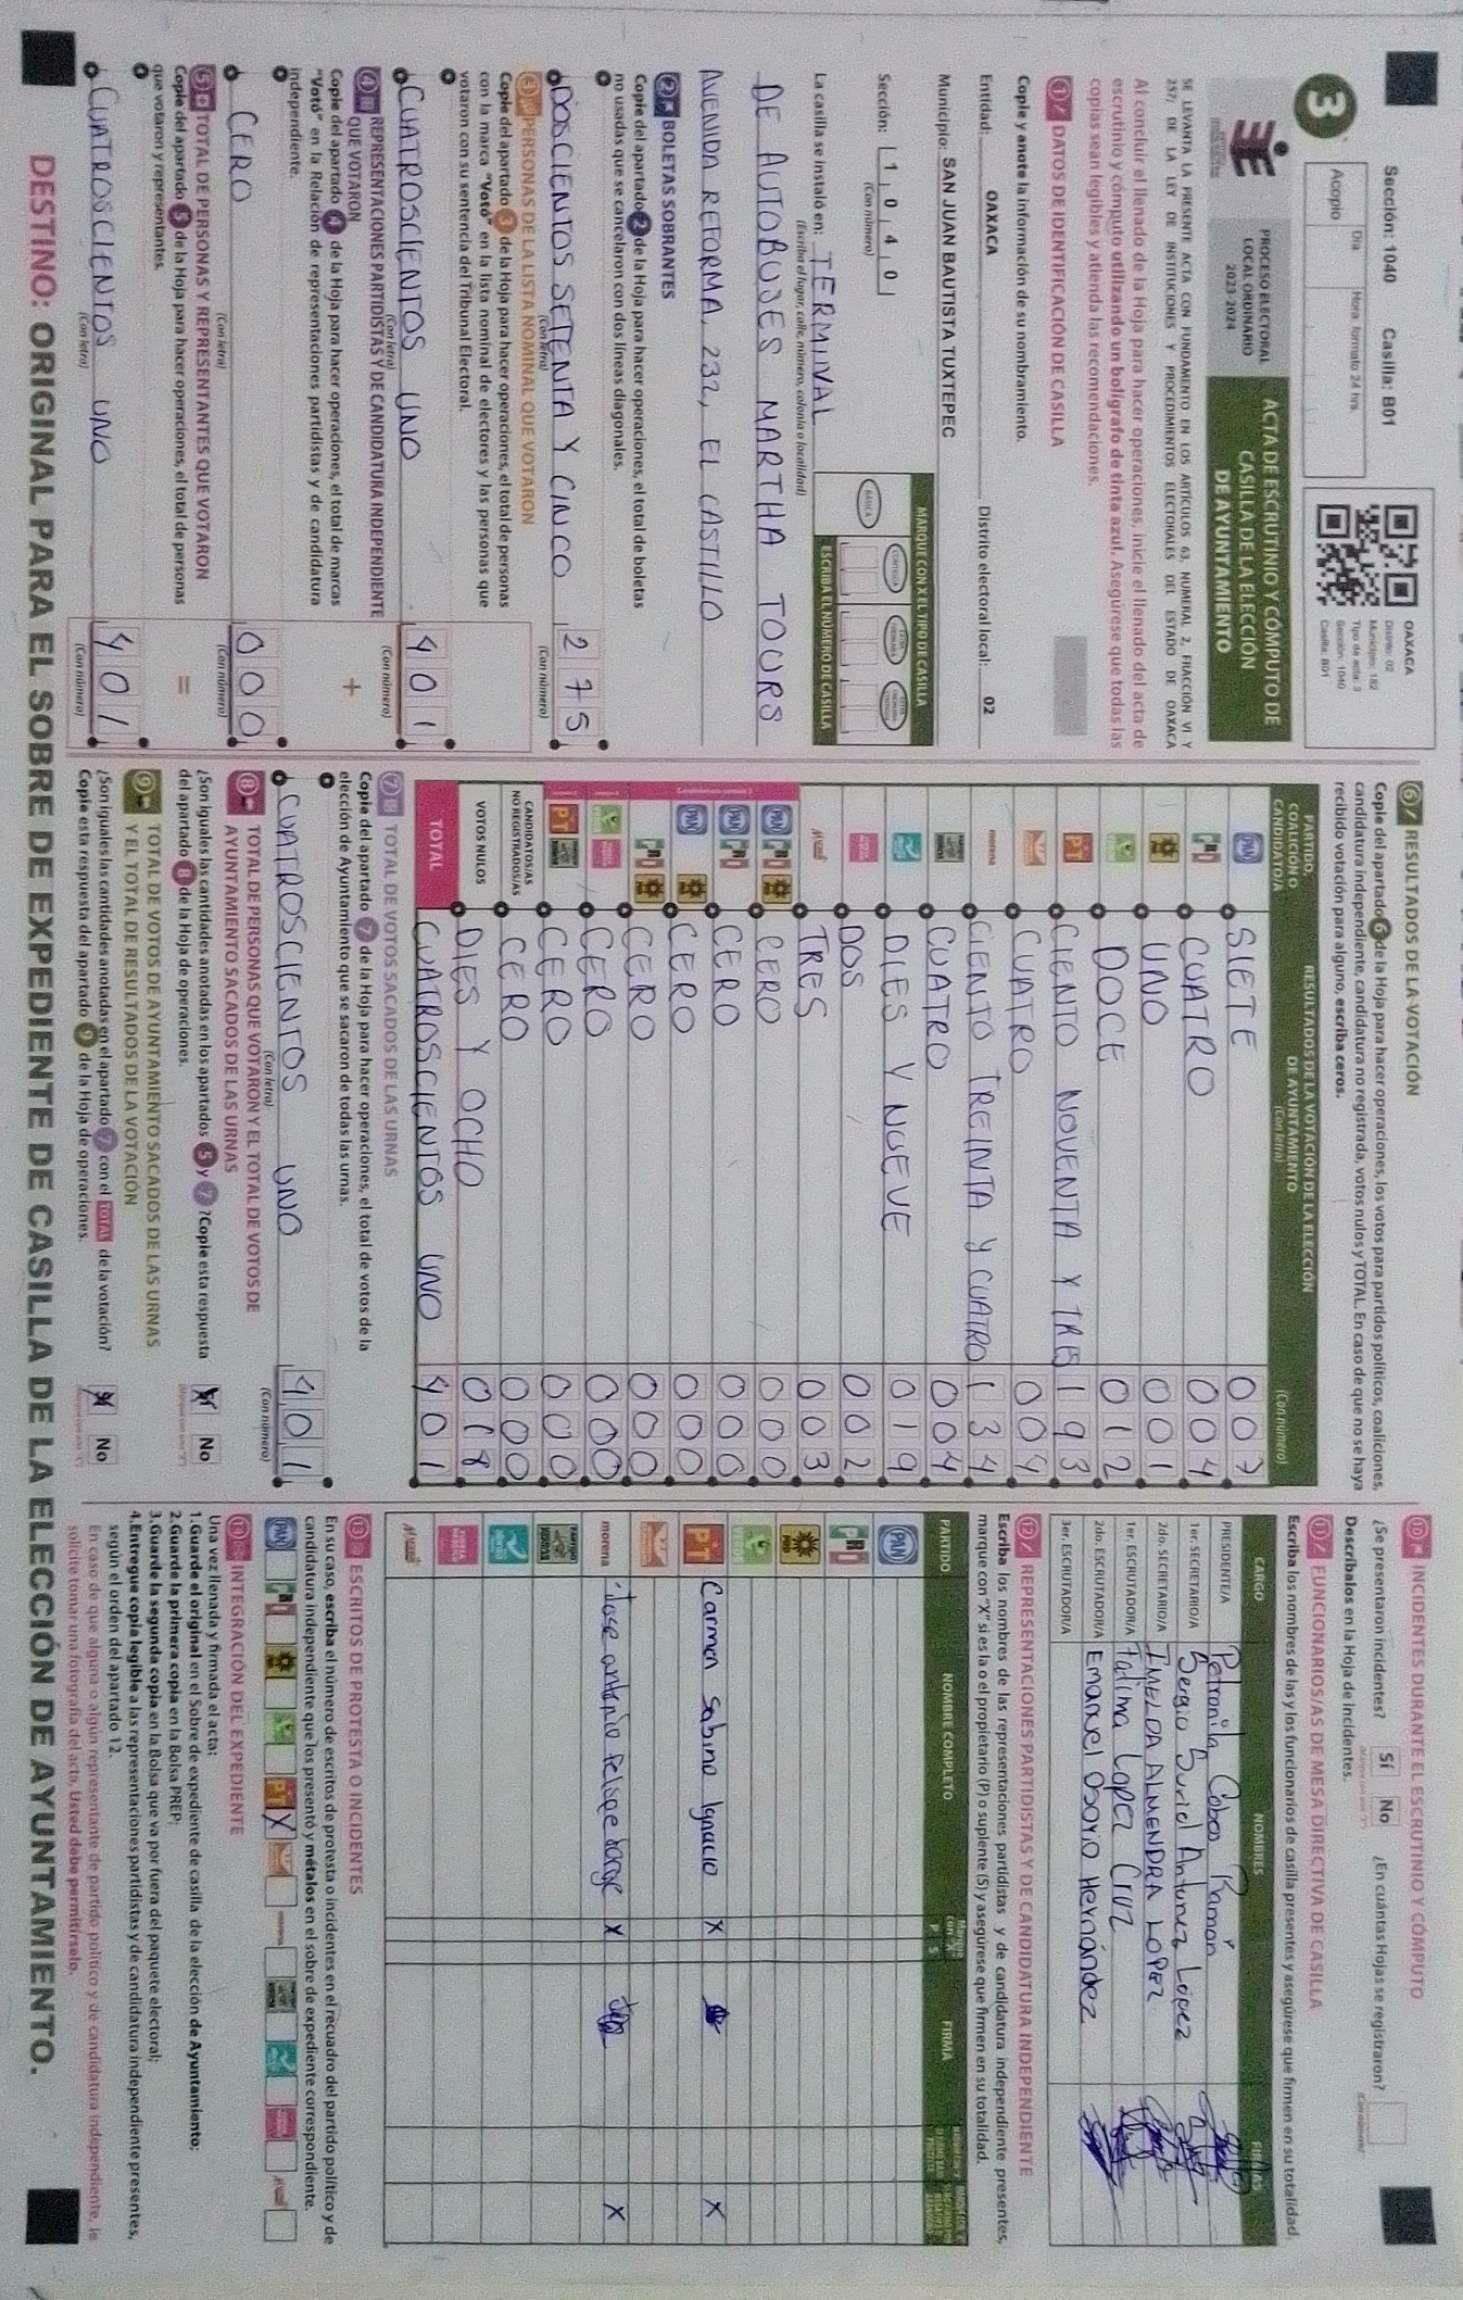 Sección: 1040 Casilla: B01
3
Acopio
Día
Hora formato 24 hrs.
OAXACA
Distrito: 02
Municipio: 182
Tipo de acta: 3
Sección: 1040
Casilla: B01
PROCESO ELECTORAL
LOCAL ORDINARIO
2023-2024
ACTA DE ESCRUTINIO Y CÓMPUTO DE
CASILLA DE LA ELECCIÓN
DE AYUNTAMIENTO
SE LEVANTA LA PRESENTE ACTA CON FUNDAMENTO EN LOS ARTÍCULOS 63, NUMERAL 2, FRACCIÓN VI Y
257; DE LA LEY DE INSTITUCIONES Y PROCEDIMIENTOS ELECTORALES DEL ESTADO DE OAXACA
Al concluir el llenado de la Hoja para hacer operaciones, inicie el llenado del acta de
escrutinio y cómputo utilizando un bolígrafo de tinta azul. Asegúrese que todas las
copias sean legibles y atienda las recomendaciones.
1 DATOS DE IDENTIFICACIÓN DE CASILLA
Copie y anote la información de su nombramiento.
Entidad: OAXACA Distrito electoral local: 02
Municipio: SAN JUAN BAUTISTA TUXTEPEC
Sección: 1 0 4 0
(Con número)
MARQUE CON X EL TIPO DE CASILLA
BÁSICA
CONTIGUA
ESCRIBA EL NÚMERO DE CASILLA
La casilla se instaló en: TERMINAL
(Escriba el lugar, calle, número, colonia o localidad)
DE AUTOBUSES MARTHA TOURS
AVENIDA REFORMA, 232, EL CASTILLO
2 BOLETAS SOBRANTES
Copie del apartado 2 de la Hoja para hacer operaciones, el total de boletas
no usadas que se cancelaron con dos líneas diagonales.
DOSCIENTOS SETENTA Y CINCO 275
(Con letra) (Con número)
3 PERSONAS DE LA LISTA NOMINAL QUE VOTARON
Copie del apartado 3 de la Hoja para hacer operaciones, el total de personas
con la marca "Votó" en la lista nominal de electores y las personas que
votaron con su sentencia del Tribunal Electoral.
CUATROSCIENTOS UNO 401
(Con letra) (Con número)
4 REPRESENTACIONES PARTIDISTAS Y DE CANDIDATURA INDEPENDIENTE
QUE VOTARON
+
Copie del apartado 4 de la Hoja para hacer operaciones, el total de marcas
"Votó" en la Relación de representaciones partidistas y de candidatura
independiente.
CERO 000
(Con letra) (Con número)
5 TOTAL DE PERSONAS Y REPRESENTANTES QUE VOTARON
=
Copie del apartado 5 de la Hoja para hacer operaciones, el total de personas
que votaron y representantes.
CUATROSCIENTOS UNO 401
(Con letra) (Con número)
6 RESULTADOS DE LA VOTACIÓN
Copie del apartado 6 de la Hoja para hacer operaciones, los votos para partidos políticos, coaliciones,
candidatura independiente, candidatura no registrada, votos nulos y TOTAL. En caso de que no se haya
recibido votación para alguno, escriba ceros.
PARTIDO,
COALICIÓN O
CANDIDATO/A
RESULTADOS DE LA VOTACIÓN DE LA ELECCIÓN
DE AYUNTAMIENTO
(Con letra) (Con número)
PAN SIETE 007
PRI CUATRO 004
PRD UNO 001
VERDE DOCE 012
PT CIENTO NOVENTA Y TRES 193
CUATRO 004
morena CIENTO TREINTA Y CUATRO 134
CUATRO 004
DIES Y NUEVE 019
DOS 002
TRES 003
PAN PRI PRD CERO 000
PAN PRI CERO 000
PAN PRD CERO 000
PRI PRD CERO 000
CERO 000
PT CERO 000
CANDIDATOS/AS
NO REGISTRADOS/AS CERO 000
VOTOS NULOS DIES Y OCHO 018
TOTAL CUATROSCIENTOS UNO 401
7 TOTAL DE VOTOS SACADOS DE LAS URNAS
Copie del apartado 7 de la Hoja para hacer operaciones, el total de votos de la
elección de Ayuntamiento que se sacaron de todas las urnas.
CUATROSCIENTOS UNO 401
(Con letra) (Con número)
8 TOTAL DE PERSONAS QUE VOTARON Y EL TOTAL DE VOTOS DE
AYUNTAMIENTO SACADOS DE LAS URNAS
¿Son iguales las cantidades anotadas en los apartados 5 y 7? Copie esta respuesta
del apartado 8 de la Hoja de operaciones.
X No
9 TOTAL DE VOTOS DE AYUNTAMIENTO SACADOS DE LAS URNAS
Y EL TOTAL DE RESULTADOS DE LA VOTACIÓN
¿Son iguales las cantidades anotadas en el apartado 7 con el TOTAL de la votación?
Copie esta respuesta del apartado 9 de la Hoja de operaciones.
X No
10 INCIDENTES DURANTE EL ESCRUTINIO Y CÓMPUTO
¿Se presentaron incidentes? Sí No ¿En cuántas Hojas se registraron?
Descríbalos en la Hoja de incidentes.
11 FUNCIONARIOS/AS DE MESA DIRECTIVA DE CASILLA
Escriba los nombres de las y los funcionarios de casilla presentes y asegúrese que firmen en su totalidad.
CARGO NOMBRES FIRMAS
PRESIDENTE/A Petronila Cobos Ramón
1er. SECRETARIO/A Sergio Suriel Antunez López
2do. SECRETARIO/A IMELDA ALMENDRA LOPEZ
1er. ESCRUTADOR/A Fatima Lopez Cruz
2do. ESCRUTADOR/A Emanuel Osorio Hernández
3er. ESCRUTADOR/A
12 REPRESENTACIONES PARTIDISTAS Y DE CANDIDATURA INDEPENDIENTE
Escriba los nombres de las representaciones partidistas y de candidatura independiente presentes,
marque con "X" si es la o el propietario (P) o suplente (S) y asegúrese que firmen en su totalidad.
PARTIDO NOMBRE COMPLETO Marque con "X" P S FIRMA
PAN
PRI
PRD
VERDE
PT Carmen Sabino Ignacio X X
morena Jose antonio Felipe X X
13 ESCRITOS DE PROTESTA O INCIDENTES
En su caso, escriba el número de escritos de protesta o incidentes en el recuadro del partido político y de
candidatura independiente que los presentó y métalos en el sobre de expediente correspondiente.
PAN PRI PRD PT X
14 INTEGRACIÓN DEL EXPEDIENTE
Una vez llenada y firmada el acta:
1. Guarde el original en el Sobre de expediente de casilla de la elección de Ayuntamiento;
2. Guarde la primera copia en la Bolsa PREP;
3. Guarde la segunda copia en la Bolsa que va por fuera del paquete electoral;
4. Entregue copia legible a las representaciones partidistas y de candidatura independiente presentes,
según el orden del apartado 12.
En caso de que alguna o algún representante de partido político y de candidatura independiente, le
solicite tomar una fotografía del acta, Usted debe permitírselo.
DESTINO: ORIGINAL PARA EL SOBRE DE EXPEDIENTE DE CASILLA DE LA ELECCIÓN DE AYUNTAMIENTO.